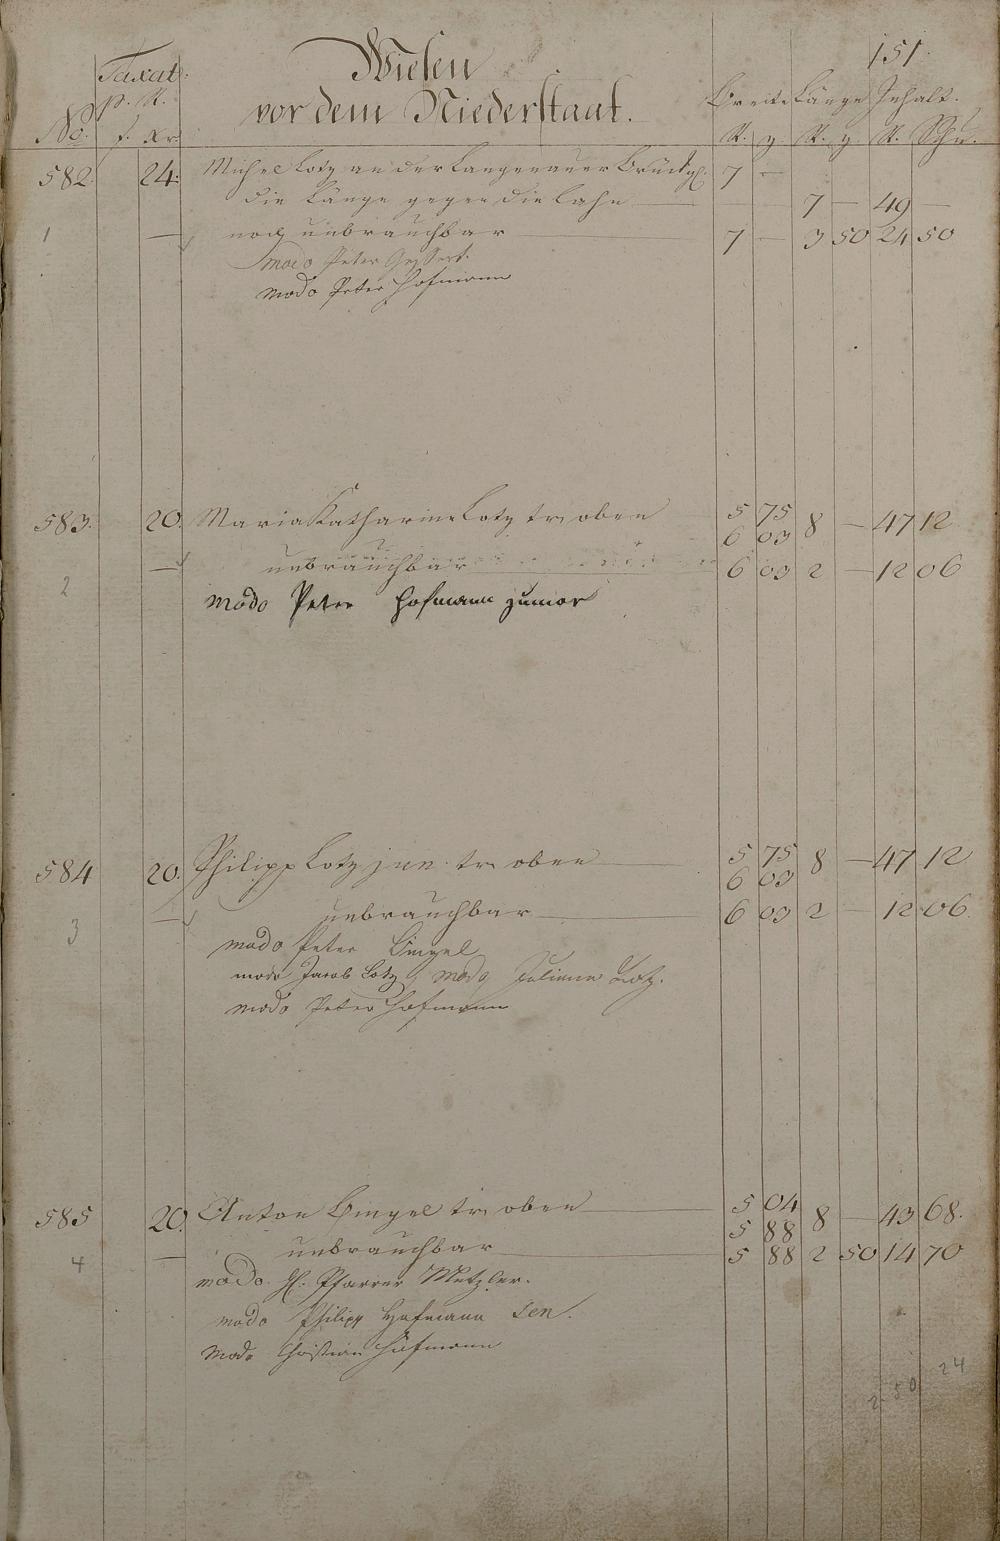 151.
Taxat: Wiesen
p. R. vor dem Niederstaat. Breite Länge Inhalt.
No. f. xr. R. R. R. Schu.
582. 24. Michel Lotz an der Langenauer Brück 7 —
die Länge gegen die Lahn 7 — 49 —
1 — noch unbrauchbar 7 — 3 50 24 50
modo Peter
modo Peter Hofmann
583. 20. Maria Katharine Lotz oben 5 75 8 — 47 12
6 03
— unbrauchbar 6 03 2 — 12 06
2
modo Peter Hofmann junior
584 20. Philipp Lotz jun. oben 5 75 8 — 47 12
6 03
— unbrauchbar 6 03 2 — 12 06
3
modo Peter Bingel
modo Jacob Lotz modo Juliane Lotz.
modo Peter Hofmann
585 20. Anton Bingel oben 5 04 8 — 43 68.
5 88
— unbrauchbar 5 88 2 50 14 70
4
modo H. Pfarrer Metzler.
modo Philipp Hofmann sen.
modo Christian Hofmann
2 50 24